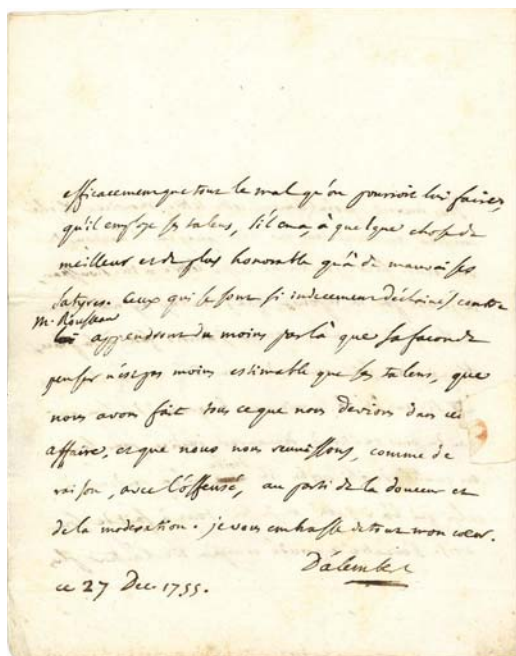 efficacement que tout le mal qu'on pourroit lui faire,
qu'il employe ses talens, s'il en a, à quelque chose de
meilleur et de plus honorable qu'à de mauvaises
satyres. Ceux qui se sont si indecemment déchainés contre
M. Rousseau
apprendront du moins par là que sa façon de
penser n'est pas moins estimable que ses talens, que
nous avons fait tout ce que nous devions dans cette
affaire, et que nous nous reunissons, comme de
raison, avec l'offensé, au parti de la douceur et
de la moderation. je vous embrasse de tout mon cœur.
D'alembert
ce 27 Dec 1755.